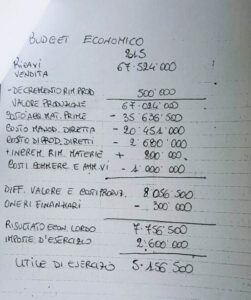 BUDGET ECONOMICO
RICAVI VENDITA 67.524'000
- DECREMENTO RIM. PROD 500'000
VALORE PRODUZIONE 67.024'000
- COSTO ACQ. MAT. PRIME - 35'636'500
COSTO MANOD. DIRETTA - 20'451'000
COSTO DI PROD. DIRETTI - 2'680'000
+ INCREM. RIM. MATERIE + 800'000
COSTI COMMERC E AMM.VI - 1'000'000
DIFF. VALORE E COSTI PRODUZ. 8'056'500
ONERI FINANZIARI - 300'000
RISULTATO ECON. LORDO 7'756'500
IMPOSTE D'ESERCIZIO 2'600'000
UTILE DI ESERCIZIO 5.156'500